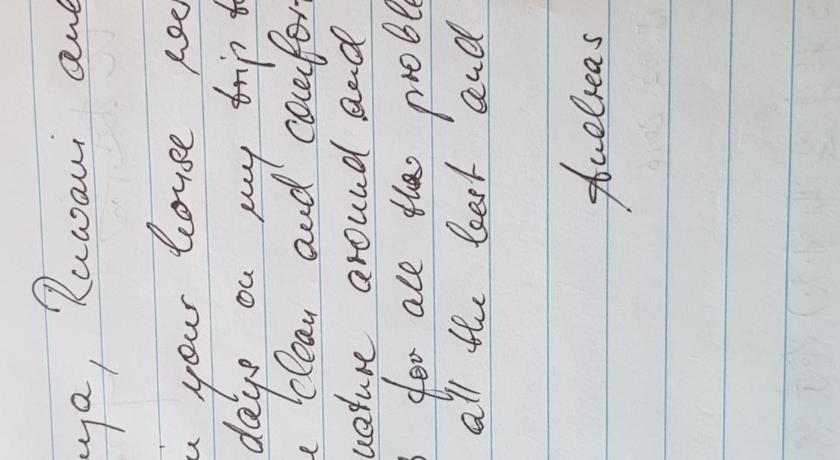 ya, Ruwani and
your house
days on my trip to
clean and comfor
nature around and
for all the proble
all the best and
Andreas